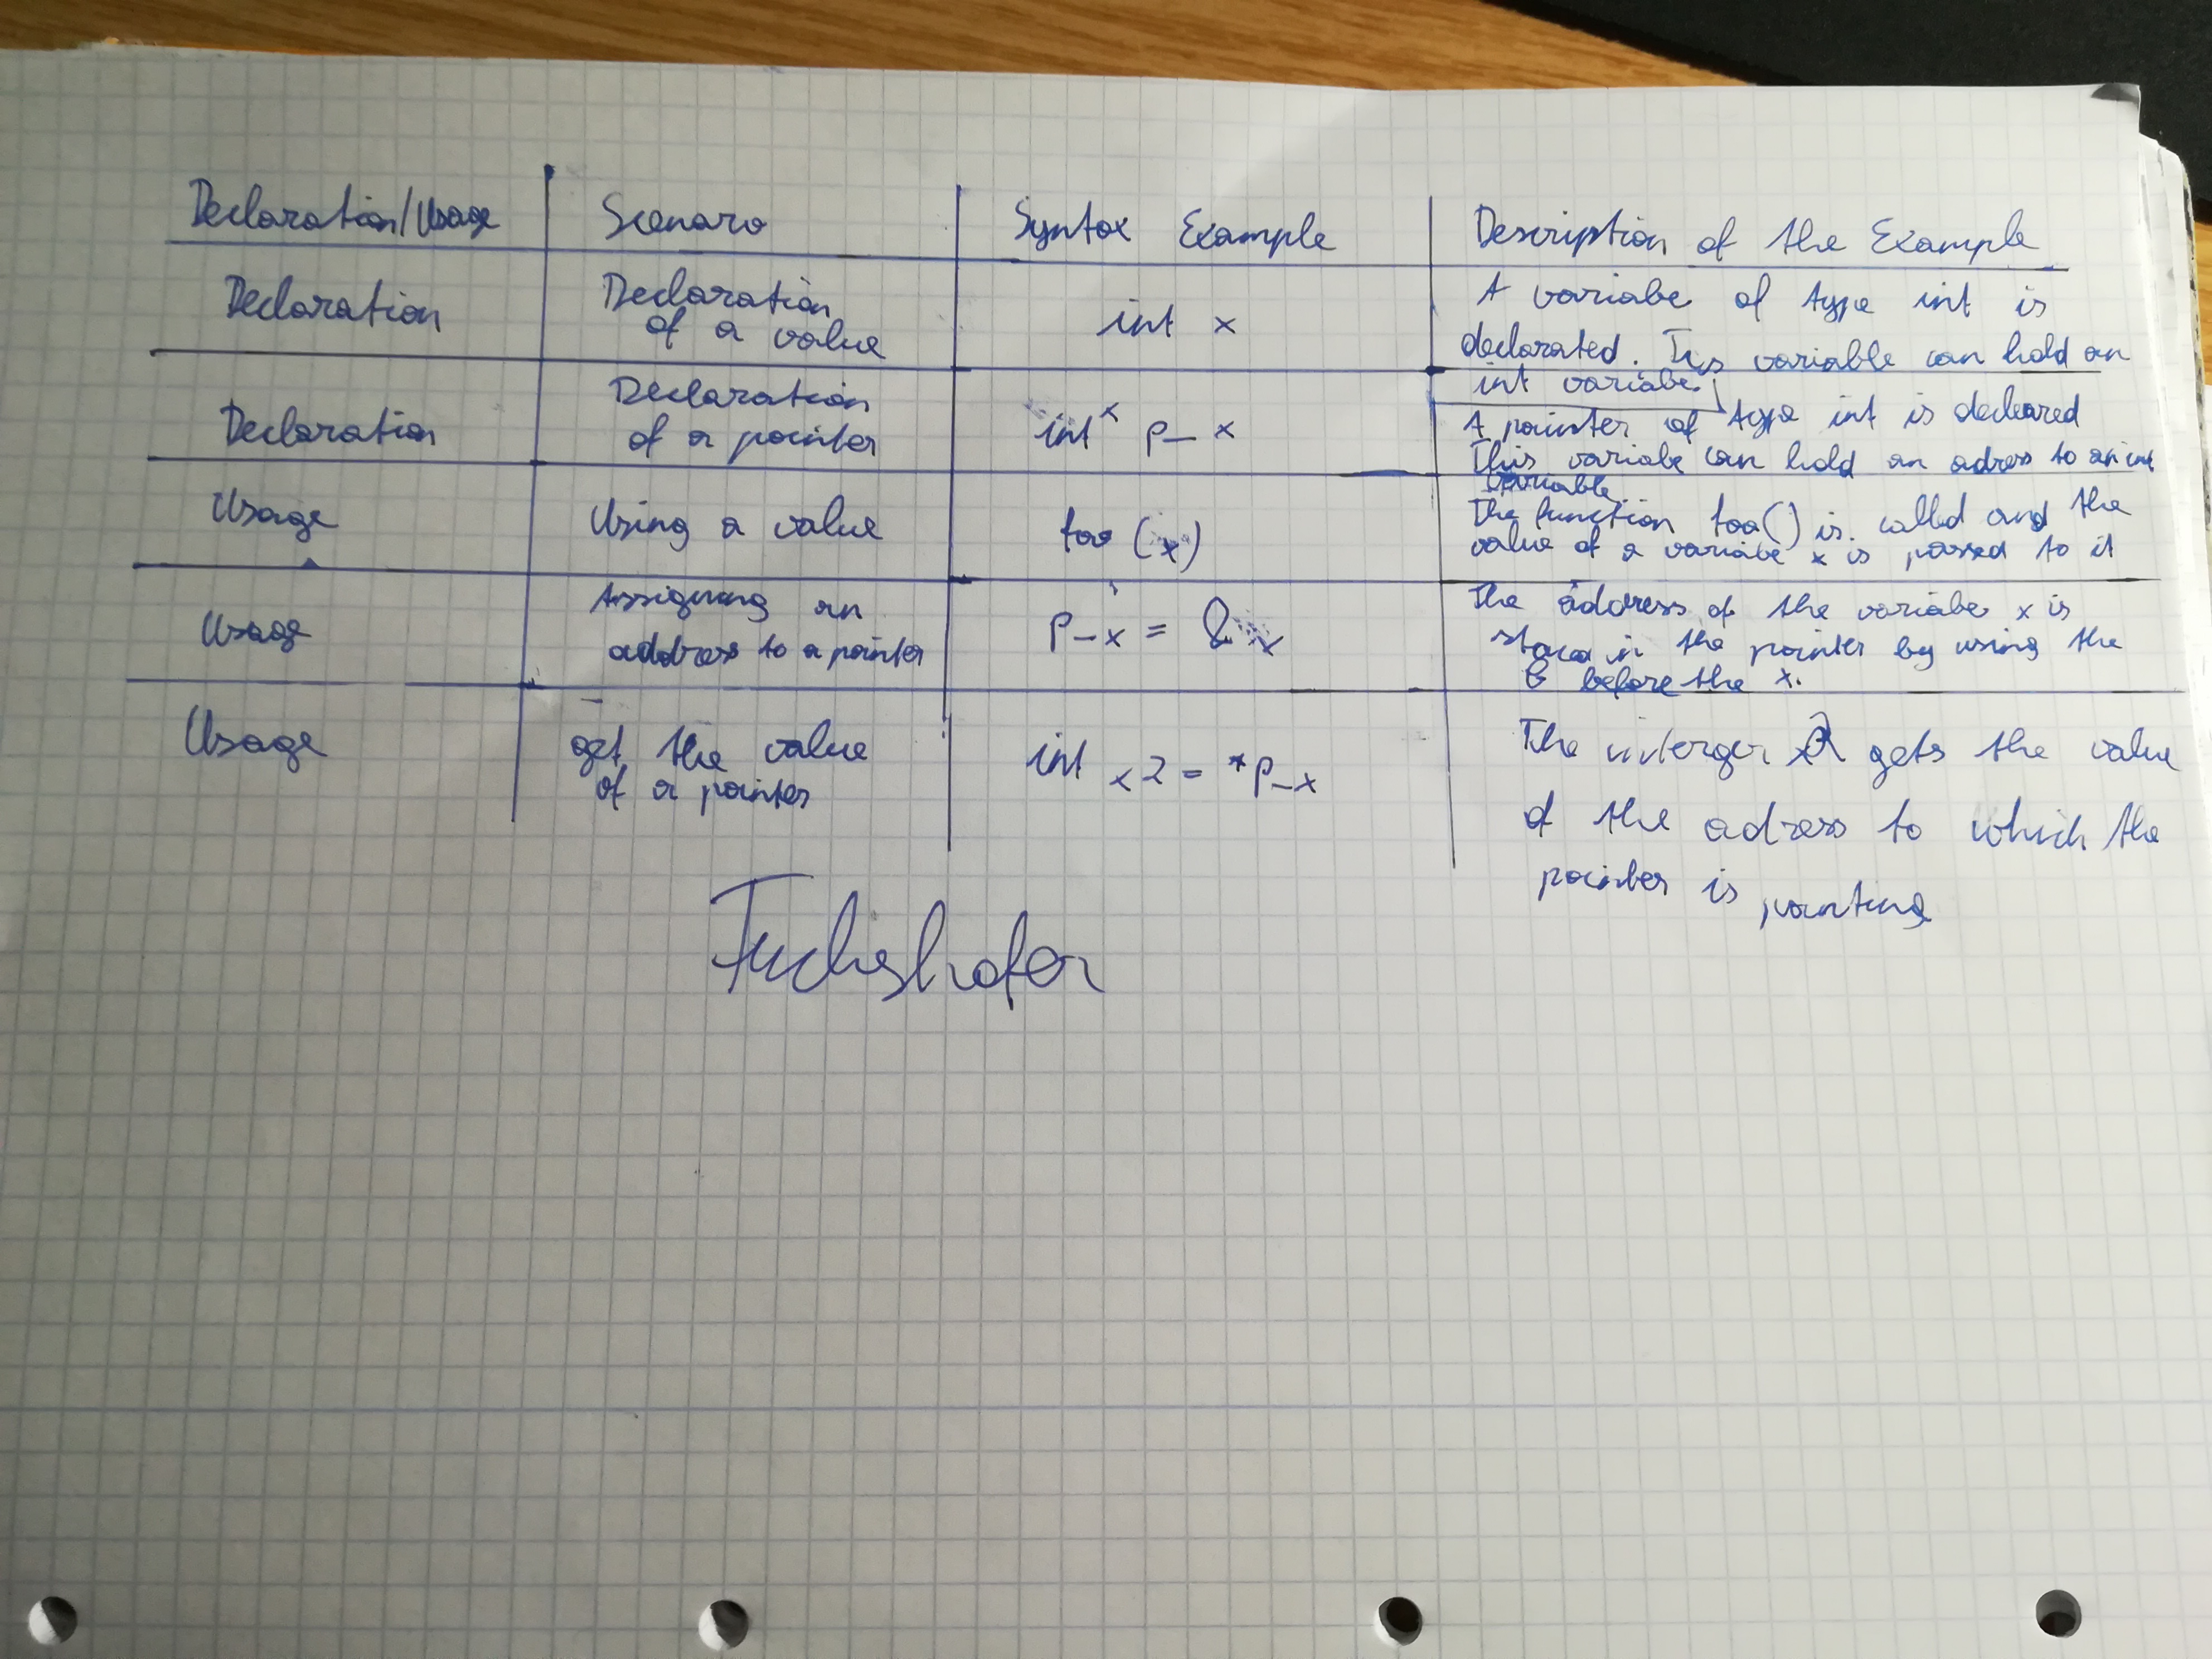 Declaration/Usage Scenaro Syntax Example Description of the Example
Declaration
Declaration
of a value
int x
A variabe of type int is
declarated. This variable can hold an
int variabe.
Declaration
Declaration
of a pointer
int* p_x
A pointer of type int is decleared
This variabe can hold an adress to an int
variable
Usage
Using a value
foo (x)
The function foo() is called and the
value of a variabe x is passed to it
Usage
Assigning an
address to a pointer
p_x = &x
The address of the variabe x is
in the pointer by using the
& before the x.
Usage
get the value
of a pointer
int x2 = *p_x
The interger x2 gets the value
of the adress to which the
pointer is pointing
Fuchshofer